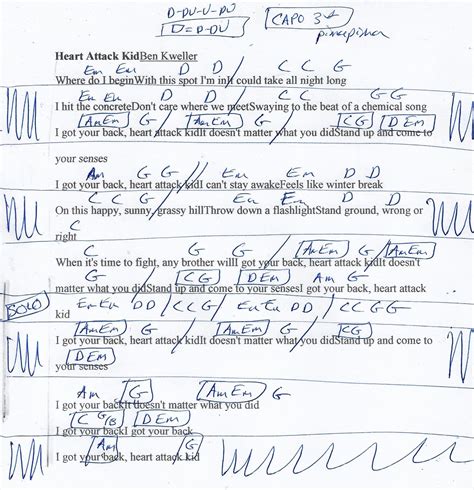 D-DU-U-DU
D=D-DU
CAPO 3
Heart Attack KidBen Kweller
Em Em D D / C C G
Where do I beginWith this spot I'm inIt could take all night long
Em Em D D / C C G G
I hit the concreteDon't care where we meetSwaying to the beat of a chemical song
AmEm G / AmEm G / CG DEm
I got your back, heart attack kidIt doesn't matter what you didStand up and come to
your senses
Am G G / Em Em D D
I got your back, heart attack kidI can't stay awakeFeels like winter break
C C G / Em Em D D
On this happy, sunny, grassy hillThrow down a flashlightStand ground, wrong or
C
right
C G G / AmEm G / AmEm
When it's time to fight, any brother willI got your back, heart attack kidIt doesn't
G / CG DEm Am G
matter what you didStand up and come to your sensesI got your back, heart attack
SOLO Em Em DD / CCG / Em Em DD / CCGG
kid
AmEm G / AmEm G / CG
I got your back, heart attack kidIt doesn't matter what you didStand up and come to
DEm
your senses
Am G AmEm G
I got your backIt doesn't matter what you did
C G/B DEm
I got your backI got your back
Am G
I got your back, heart attack kid